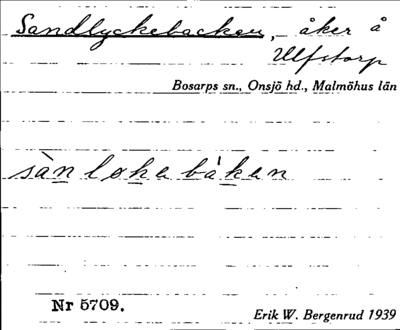 Sandlyckebacken, åker å
Ulfstorp
Bosarps sn., Onsjö hd., Malmöhus län
sànlokebáken
Nr 5709.
Erik W. Bergenrud 1939